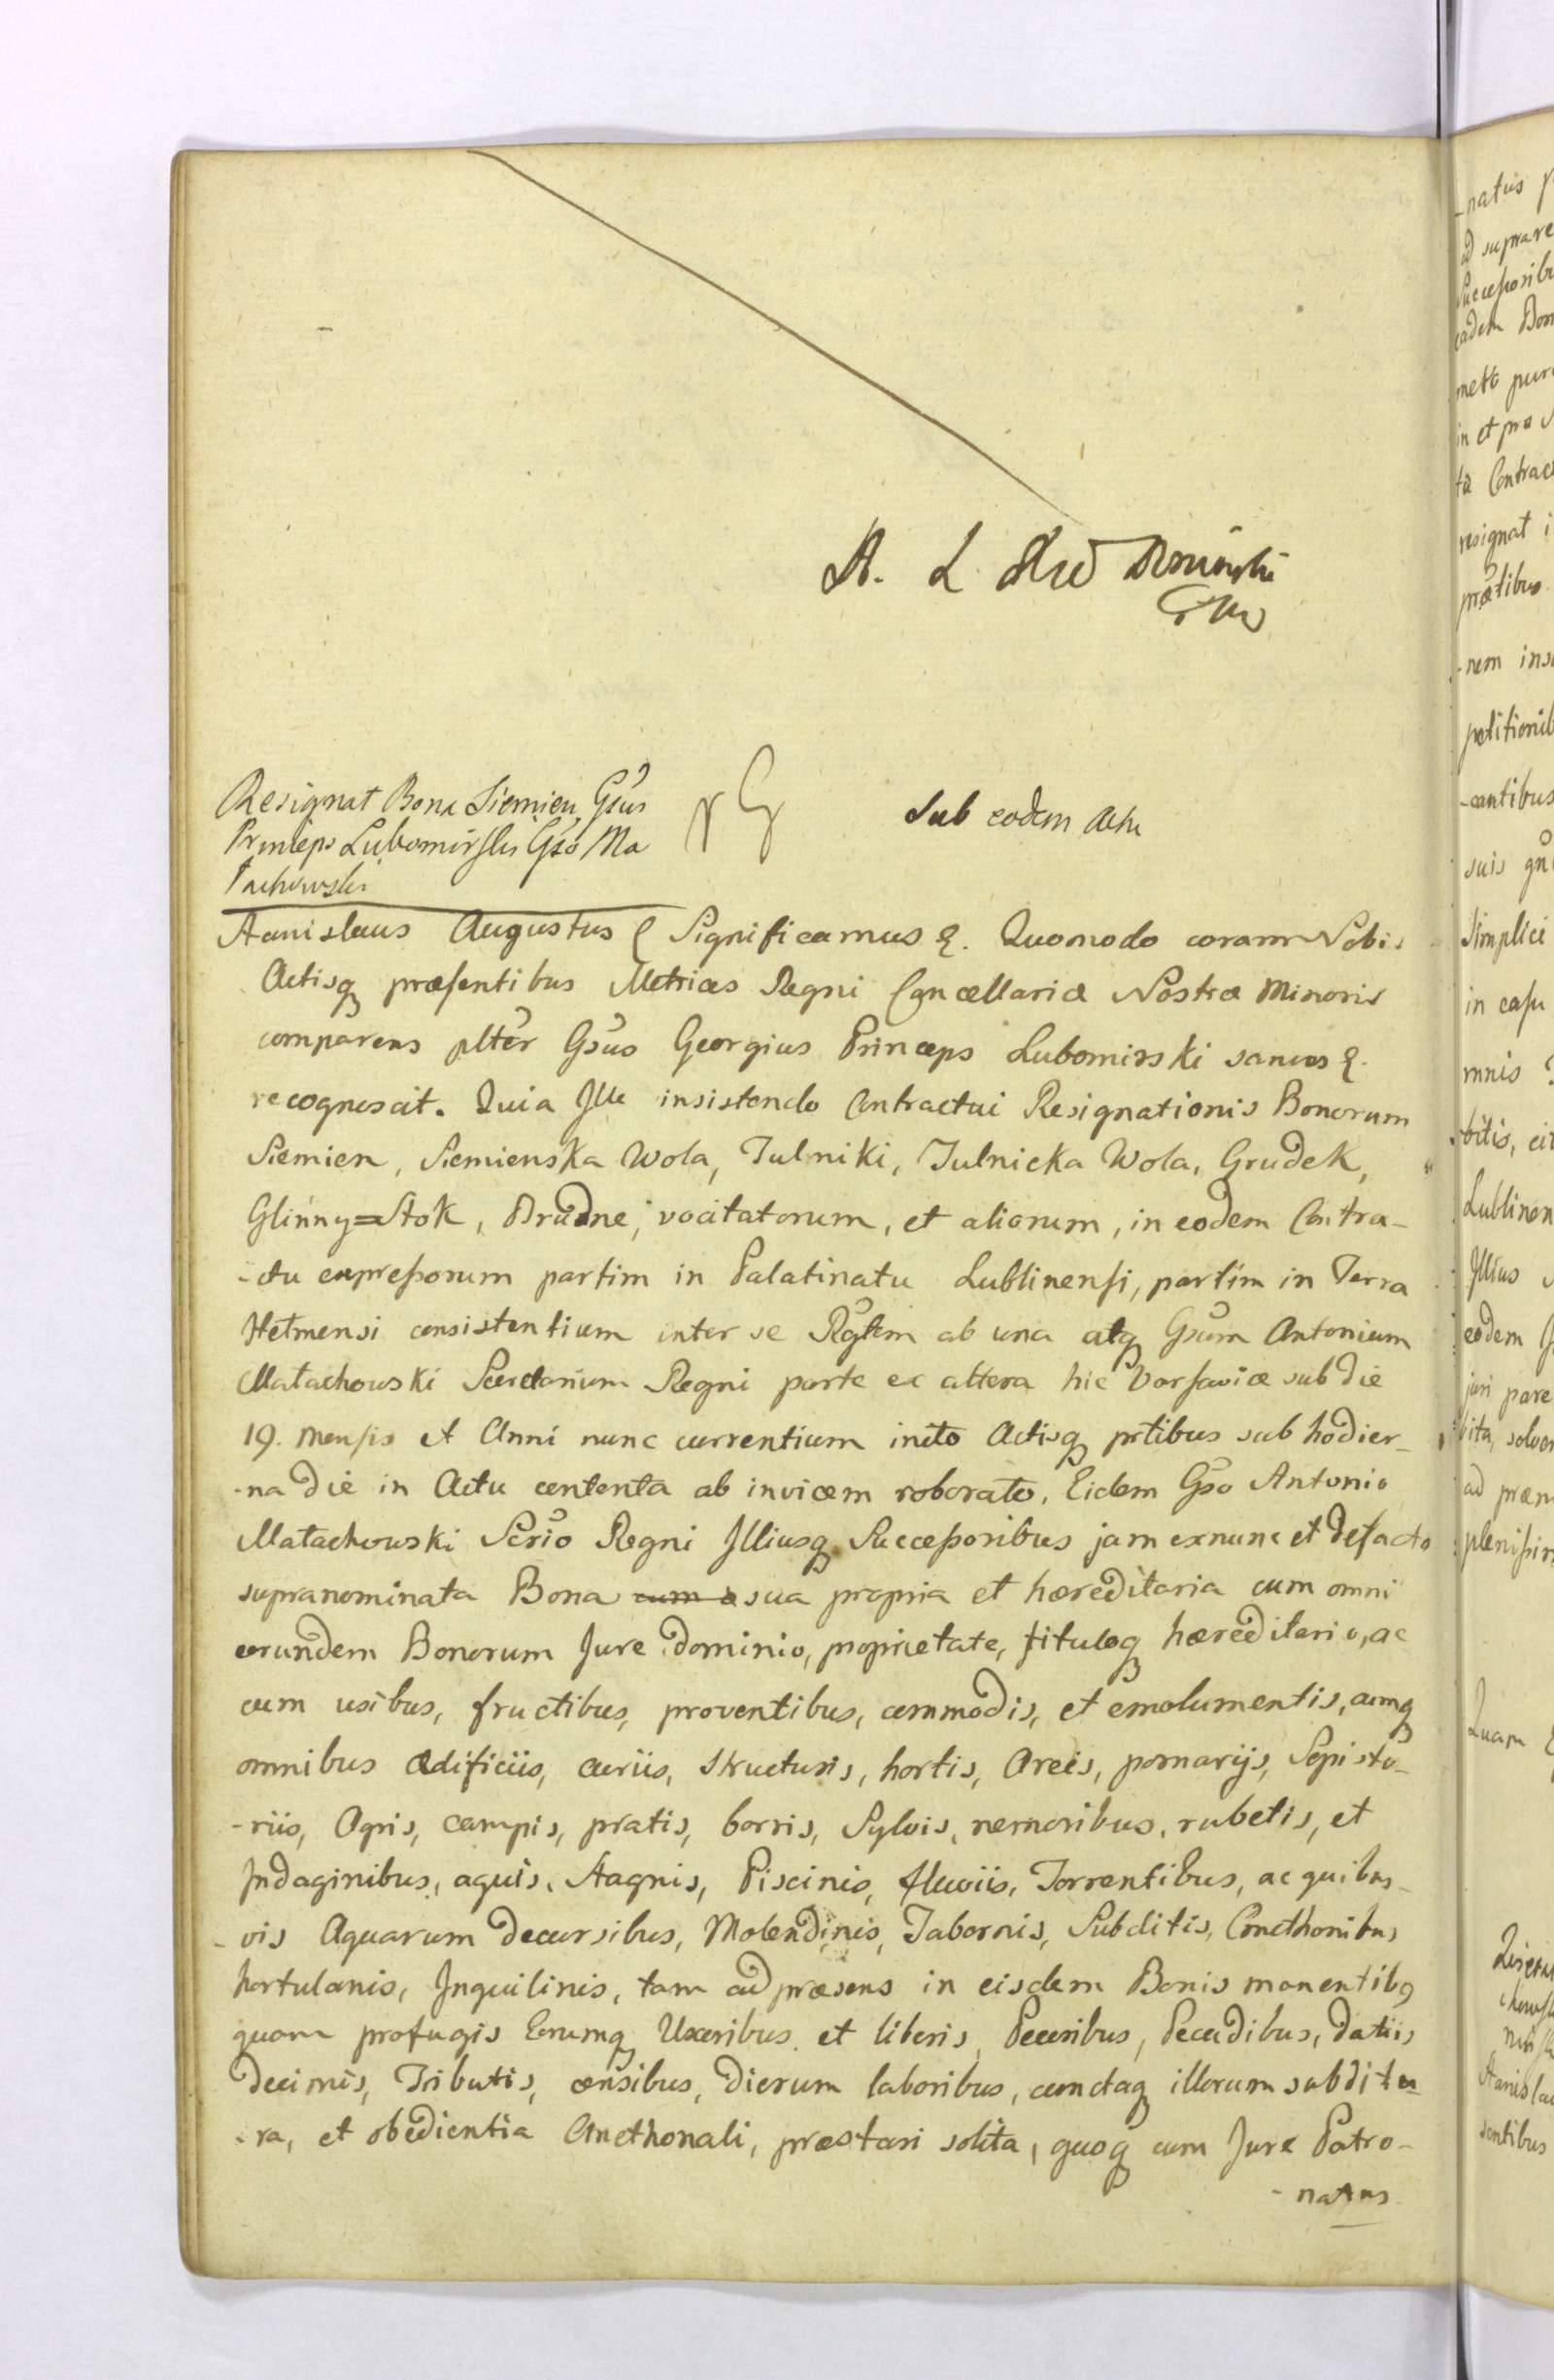 A. L.
Resignat Bona Siemien Gsus
Princeps Lubomirski Gso Ma
łachowski
Sub eodem Actu
Stanislaus Augustus Significamus &. Quomodo coram Nobis
Actisq præsentibus Metrices Regni Cancellariæ Nostræ Minoris
comparens plter Gsus Georgius Princeps Lubomirski sanus &.
recognoscit. Quia Ille insistendo Contractui Resignationis Bonorum
Siemien, Siemienska Wola, Tulniki, Tulnicka Wola, Grudek,
Glinny=Stok, Brudne, vocitatorum, et aliorum, in eodem Contra-
-ctu expressorum partim in Palatinatu Lublinensi, partim in Terra
Stetmensi consistentium inter se Rgtem ab una atq Gsum Antonium
Małachowski Secretarium Regni parte ex altera hic Varsaviæ sub die
19. mensis et Anni nunc currentium inito Actisq prtibus sub hodier-
-na die in Actu contenta ab invicem roborato, Eidem Gso Antonio
Małachowski Scrio Regni Illiusq Successoribus jam exnunc et defacto
supranominata Bona cum a sua propria et hæreditaria cum omni
eorundem Bonorum Jure dominio, proprietate, tituloq hæreditario, ac
cum usibus, fructibus, proventibus, commodis, et emolumentis, cumq
omnibus ædificiis, curiis, structuris, hortis, Areis, pomarijs, Sepisto-
-riis, Agris, campis, pratis, borris, Sylvis, nemoribus, rubetis, et
Indaginibus, aquis, Stagnis, Piscinis, fluviis, Torrentibus, ac quibus-
-vis Aquarum decursibus, Molendinis, Tabernis, Subditis, Cmethonibus
hortulanis, Inquilinis, tam ad præsens in eisdem Bonis manentibq
quam profugis Eorumq Uxoribus et liberis, Pecoribus, Pecudibus, datiis
decimis, Tributis, censibus, dierum laboribus, cunctaq illorum subditu
-ra, et obedientia Cmethonali, præstari solita, quoq cum Jure Patro-
-natus
-natus
ad suprare
Successorib
eadem Bon
in et pro
Contrac
resignat i
-nem ins
petitionib
-cantibus
suis
Simplici
in casu
mnis
Lublinen
Illius
eodem
juri pare
ad præm
plenissi
Quam
Stanislau
sentibus